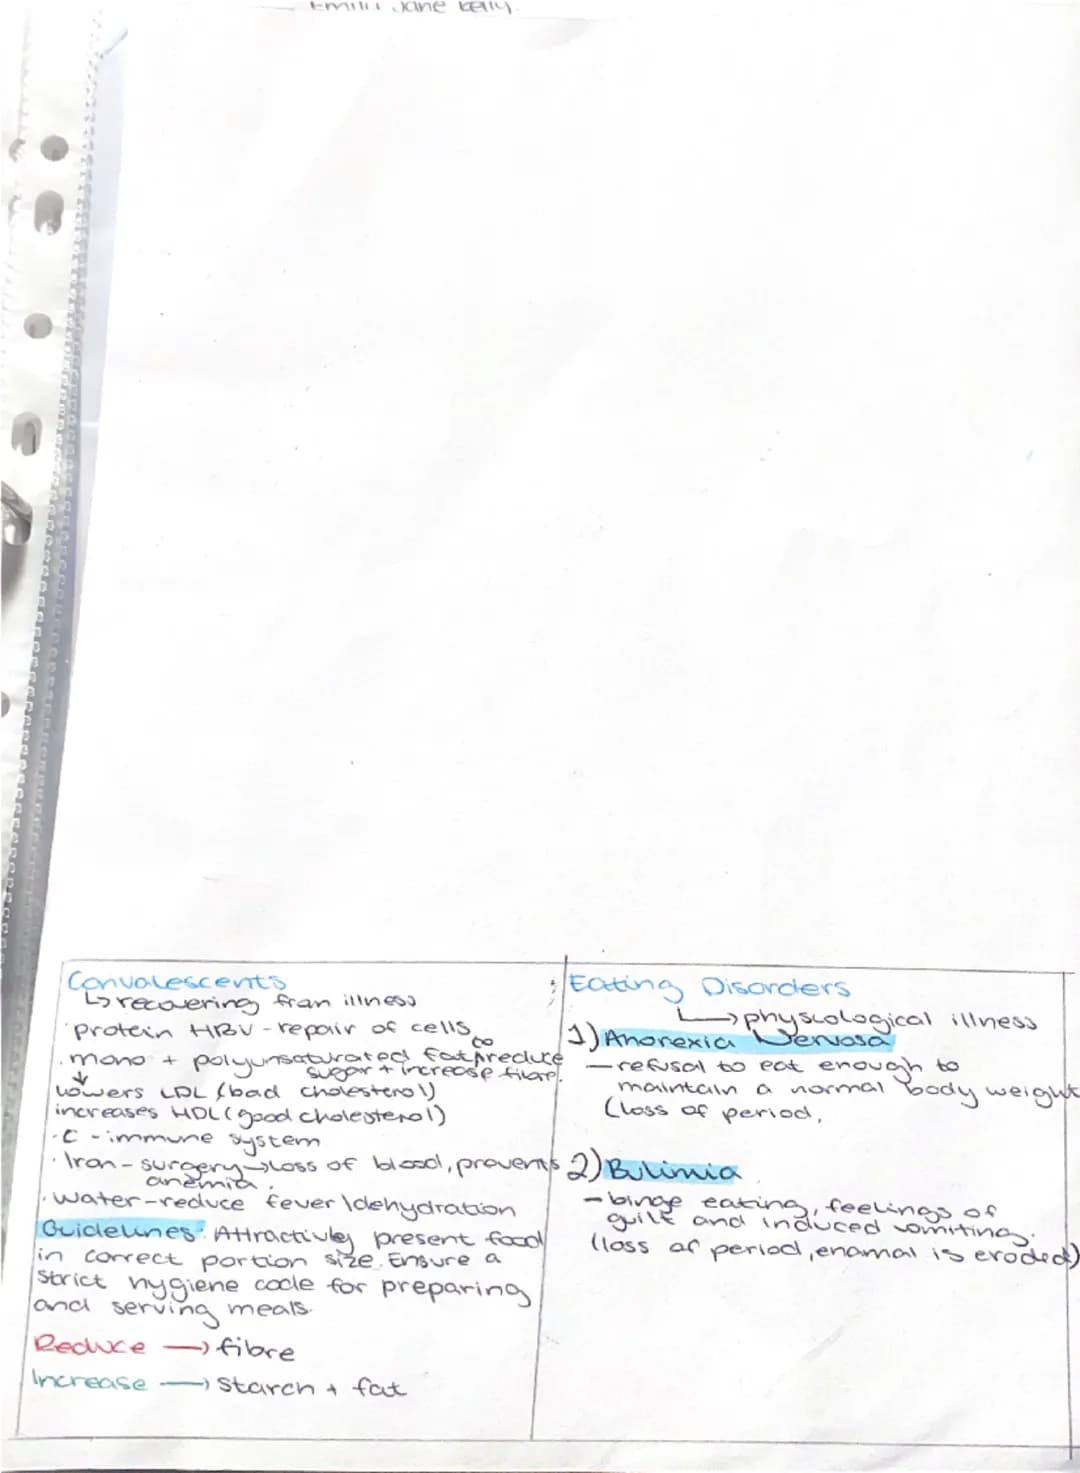 Jane Kelly
Convalescents
↳ recovering from illness
· protein HBV - repair of cells
· mono + polyunsaturated fat to reduce
sugar + increase fibre.
↓
lowers LDL (bad cholesterol)
increases HDL (good cholesterol)
· C - immune system
· Iron - surgery → loss of blood, prevents
anemia.
· Water - reduce fever \dehydration
Guidelines: Attractivley present food
in correct portion size. Ensure a
strict hygiene code for preparing
and serving meals.
Reduce → fibre
Increase → starch + fat
Eating Disorders
↳ physcological illness
1) Anorexia Nervosa
- refusal to eat enough to
maintain a normal body weight
(loss of period,
2) Bulimia
- binge eating, feelings of
guilt and induced vomiting.
(loss of period, enamal is eroded)